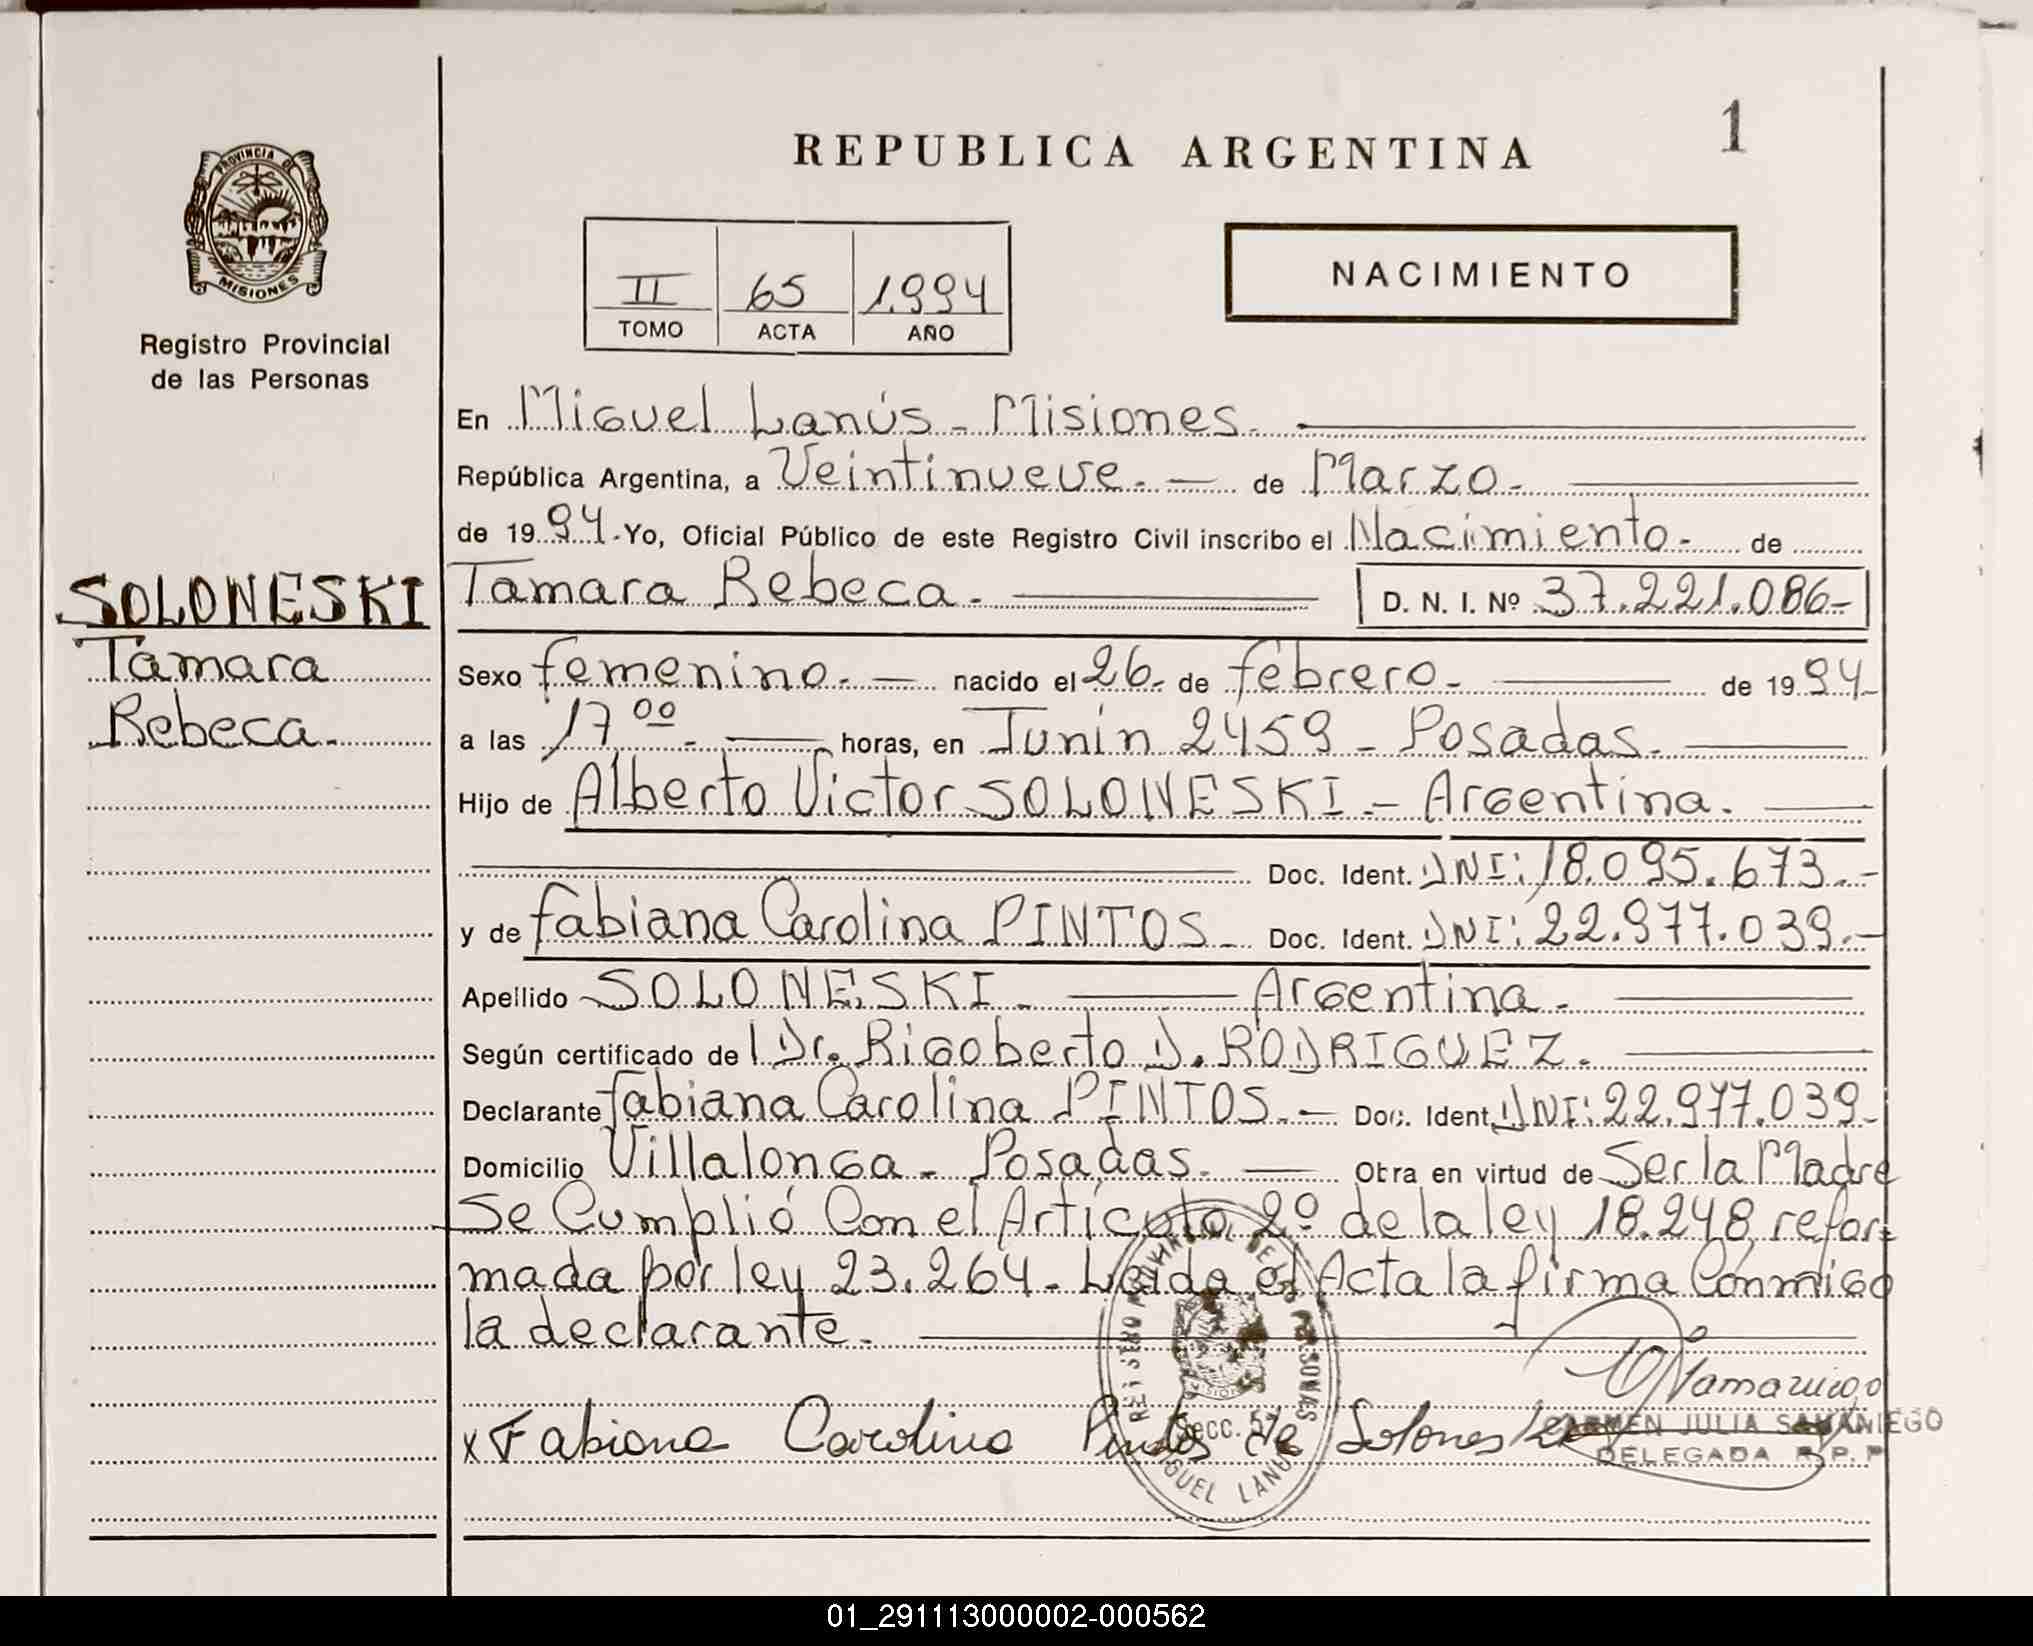 1
REPUBLICA ARGENTINA
PROVINCIA DE
MISIONES
Registro Provincial
de las Personas
II 65 1.994
TOMO ACTA AÑO
NACIMIENTO
En Miguel Lanús - Misiones.
República Argentina, a Veintinueve. - de Marzo -
de 1994 - Yo, Oficial Público de este Registro Civil inscribo el Nacimiento - de
SOLONESKI
Tamara
Rebeca.
Tamara Rebeca. D. N. I. Nº 37.221.086-
Sexo femenino. - nacido el 26. de febrero. de 1994-
a las 17 00 - horas, en Junín 2459 - Posadas.
Hijo de Alberto Victor SOLONESKI - Argentina.
Doc. Ident. DNI: 18.095.673.-
y de Fabiana Carolina PINTOS - Doc. Ident. DNI: 22.977.039.-
Apellido SOLONESKI. Argentina.
Según certificado de Dr. Rigoberto D. RODRIGUEZ.
Declarante Fabiana Carolina PINTOS. - Doc. Ident. DNI: 22.977.039-
Domicilio Villalonga - Posadas. Obra en virtud de Ser la Madre
Se Cumplió Con el Artículo 2º de la ley 18.248 refor-
mada por ley 23.264 - Leida el Acta la firma Conmigo
la declarante.
x Fabiana Carolina Pintos de Soloneski
REGISTRO PROVINCIAL DE LAS PERSONAS
Secc. 5ª
MIGUEL LANUS
CARMEN JULIA SAMANIEGO
DELEGADA R.P.P
01_291113000002-000562